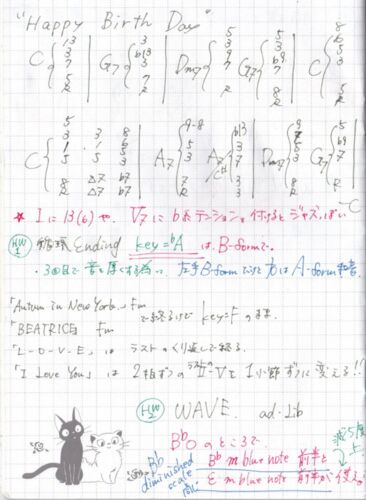 "Happy Birth Day"
C 13 3 7 5 R G7 3 b13 3 7 R Dm7 5 3 9 7 R G7 5 3 b9 7 8 R C 8 6 5 3 R
C 5 3 1 5 8 R 3 3 1 5 Δ7 Δ7 8 6 5 3 b7 b7 A7 9-8 5 3 7 R A7/C# b13 3 7 3 3 Dm7 9 5 3 8 R G7 5 b9 7 R C
★ Iに13(6)や、V7にb系テンションを付けるとジャズっぽい
HW1 Ending key=bAは、B-formで。
・3回目で音を厚くする為に、左手B-form 右はA-form和音
「Autumn in New York」 Fm
で終るけど key=Fのまま。
「BEATRICE」 Fm
「L-O-V-E」は ラストのくり返しで終る。
「I Love You」は 2拍ずつのラストのII-Vを1小節ずつに変える!!
HW2 WAVE. ad-lib
Bb○のところで、
Bb diminished scale
Bb m blue note 前半と
E m blue note 前半が使える。
減5度上